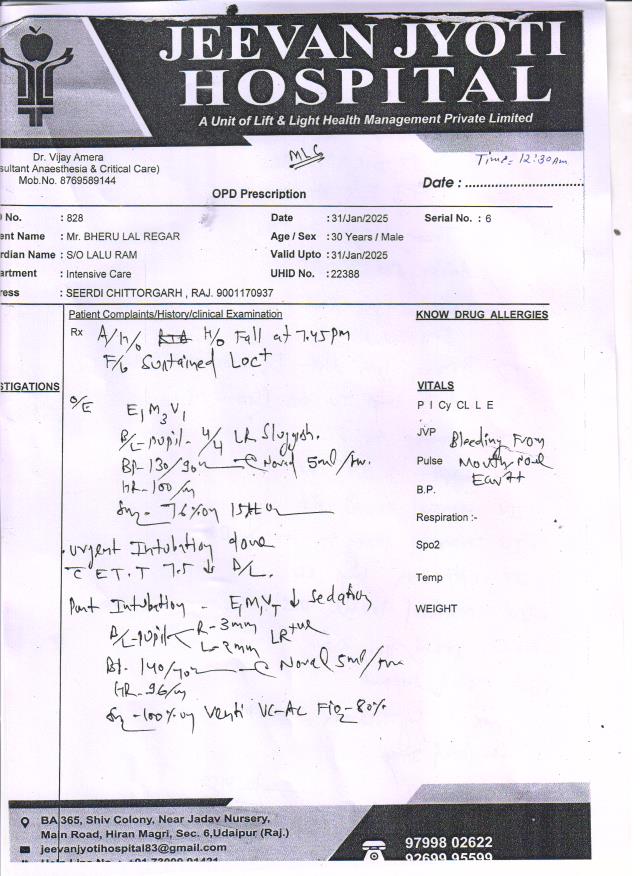 JEEVAN JYOTI
HOSPITAL
A Unit of Lift & Light Health Management Private Limited
Dr. Vijay Amera
sultant Anaesthesia & Critical Care)
Mob.No. 8769589144
MLC
Time= 12:30Am
Date : ................................
OPD Prescription
No. : 828
Date : 31/Jan/2025
Serial No. : 6
ent Name : Mr. BHERU LAL REGAR
Age / Sex : 30 Years / Male
rdian Name : S/O LALU RAM
Valid Upto : 31/Jan/2025
artment : Intensive Care
UHID No. : 22388
ress : SEERDI CHITTORGARH , RAJ. 9001170937
Patient Complaints/History/clinical Examination
KNOW DRUG ALLERGIES
Rx A/H/o H/o Fall at 7.45pm
F/b Sustained Loc+
STIGATIONS
O/E E1M3V1
B/L-pupil - 4/4 LR Sluggish.
BP- 130/90 Norad 5ml/hr.
HR-100/m
76% on 15
Urgent Intubation done
C ET.T 7.5 ↓ D/L.
Post Intubation - E1M1VT ↓ Sedation
B/L-pupil R-3mm
L-2mm LR+ve
BP- 140/70 Norad 5ml/hr
HR-96/m
-100% on Venti VC-AC FiO2-80%
VITALS
P I Cy CL L E
JVP
Bleeding From
Pulse
Mouth, Nose
Ear++
B.P.
Respiration :-
Spo2
Temp
WEIGHT
BA 365, Shiv Colony, Near Jadav Nursery,
Main Road, Hiran Magri, Sec. 6,Udaipur (Raj.)
jeevanjyotihospital83@gmail.com
97998 02622
92699 95599